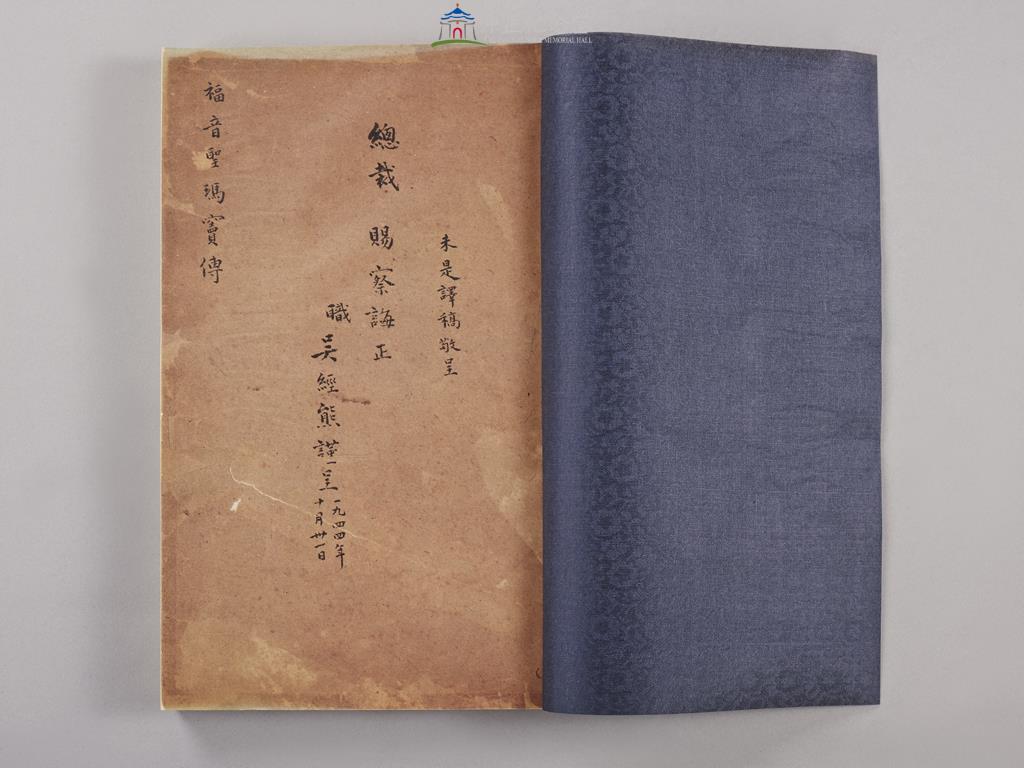 MEMORIAL HALL
未是譯稿敬呈
總裁 賜察誨正
職吳經熊謹呈
一九四四年
十月卅一日
福音聖瑪竇傳